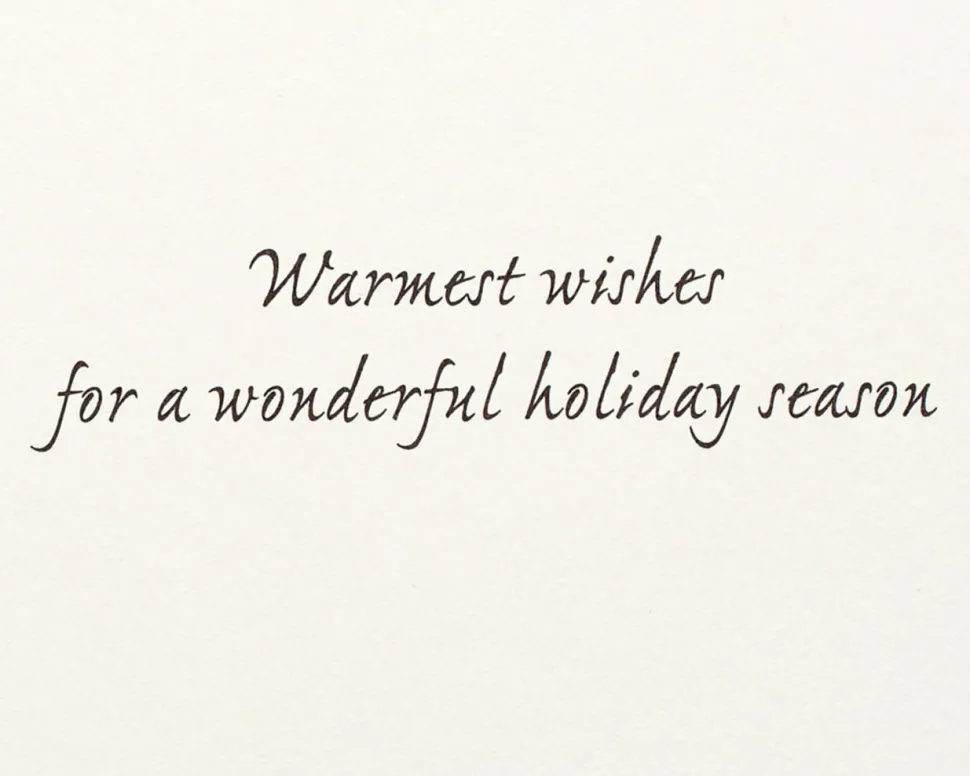 Warmest wishes
for a wonderful holiday season